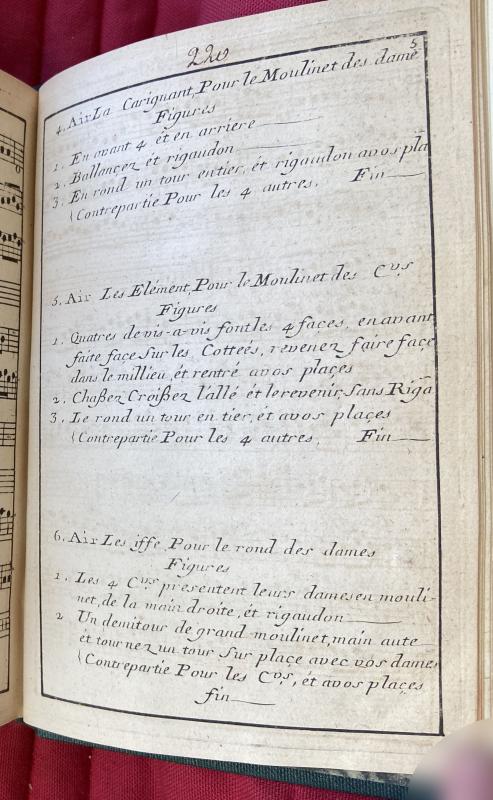 220
5
4. Air La Carignant, Pour le Moulinet des dame
Figures
1. En avant 4 ét en arriere
2. Ballançez ét rigaudon
3. En rond un tour entier, ét rigaudon avos pla
(Contrepartie Pour les 4 autres. Fin
5. Air Les Elément, Pour le Moulinet des Cvrs
Figures
1. Quatres de vis-a-vis font les 4 façes, en avant
faite façe Sur les Cotteés, revenez faire façe
dans le millieu, ét rentré avos plaçes
2. Chaßez Croißez l'allé ét le revenir, Sans Riga
3. Le rond un tour en tier, ét avos plaçes
(Contrepartie Pour les 4 autres. Fin
6. Air Les iffe Pour le rond des dames
Figures
1. Les 4 Cvrs presentent leurs dames en mouli-
net, de la main droite, ét rigaudon
2. Un demitour de grand moulinet, main aute
ét tournez un tour Sur plaçe avec vos dames
(Contrepartie Pour les Cvrs, ét avos plaçes
fin